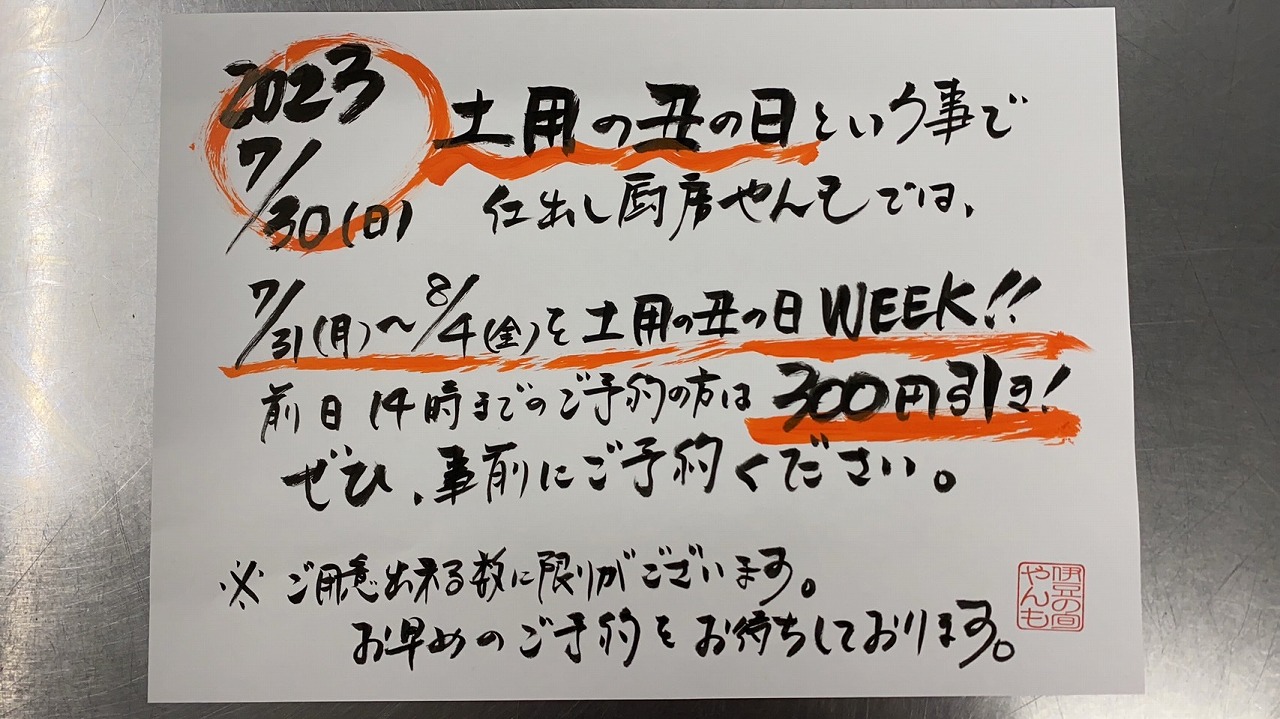 2023
7/30(日)
土用の丑の日という事で
仕出し厨房やんもでは、
7/31(月)～8/4(金)を土用の丑の日WEEK!!
前日14時までのご予約の方は300円引き!
ぜひ、事前にご予約ください。
※ご用意出来る数に限りがございます。
お早めのご予約をお待ちしております。
伊豆の宴
やんも